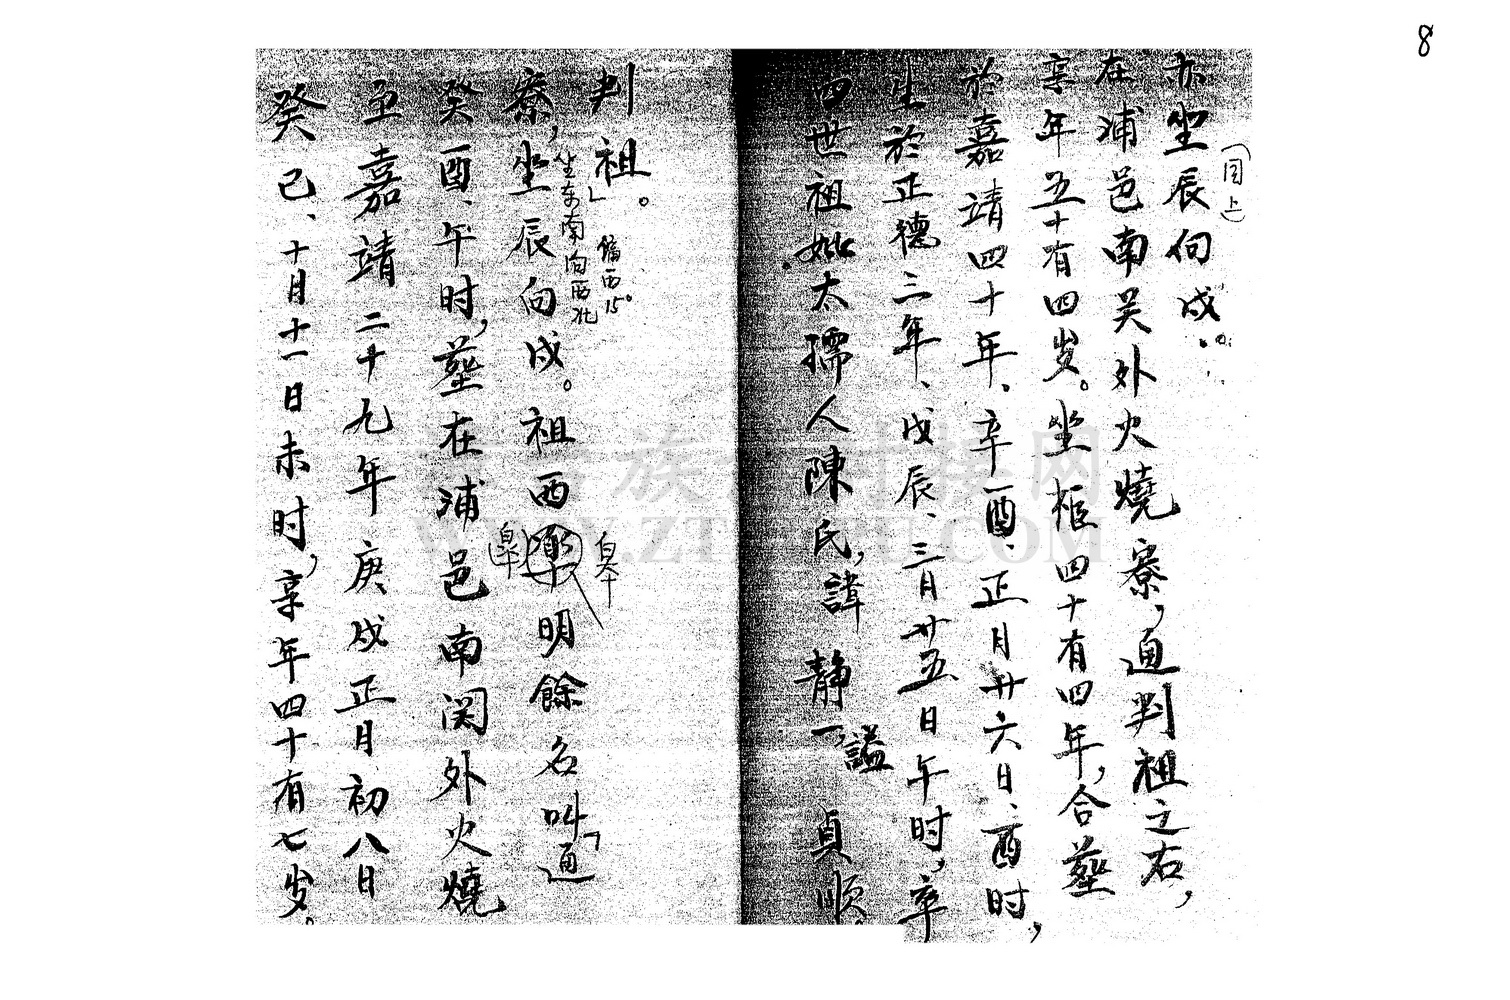 癸巳、十月十一日未时，享年四十有七岁。
至嘉靖二十九年庚戌正月初八日
癸酉、午时，葬在浦邑南関外火燒
寮，坐辰向戌。祖西樂明餘名叫「通
皋
皋
坐东南向西北
偏西15°
判祖」。
四世祖妣太孺人陳氏，諱静一，謚貞順.
生於正德三年、戊辰、三月廿五日午时，卒
於嘉靖四十年、辛酉、正月廿六日、酉时，
享年五十有四岁。坐柩四十有四年，合葬
在浦邑南关外火燒寮，通判祖之右，
亦坐辰向戌。
(同上)
8
族 对接网